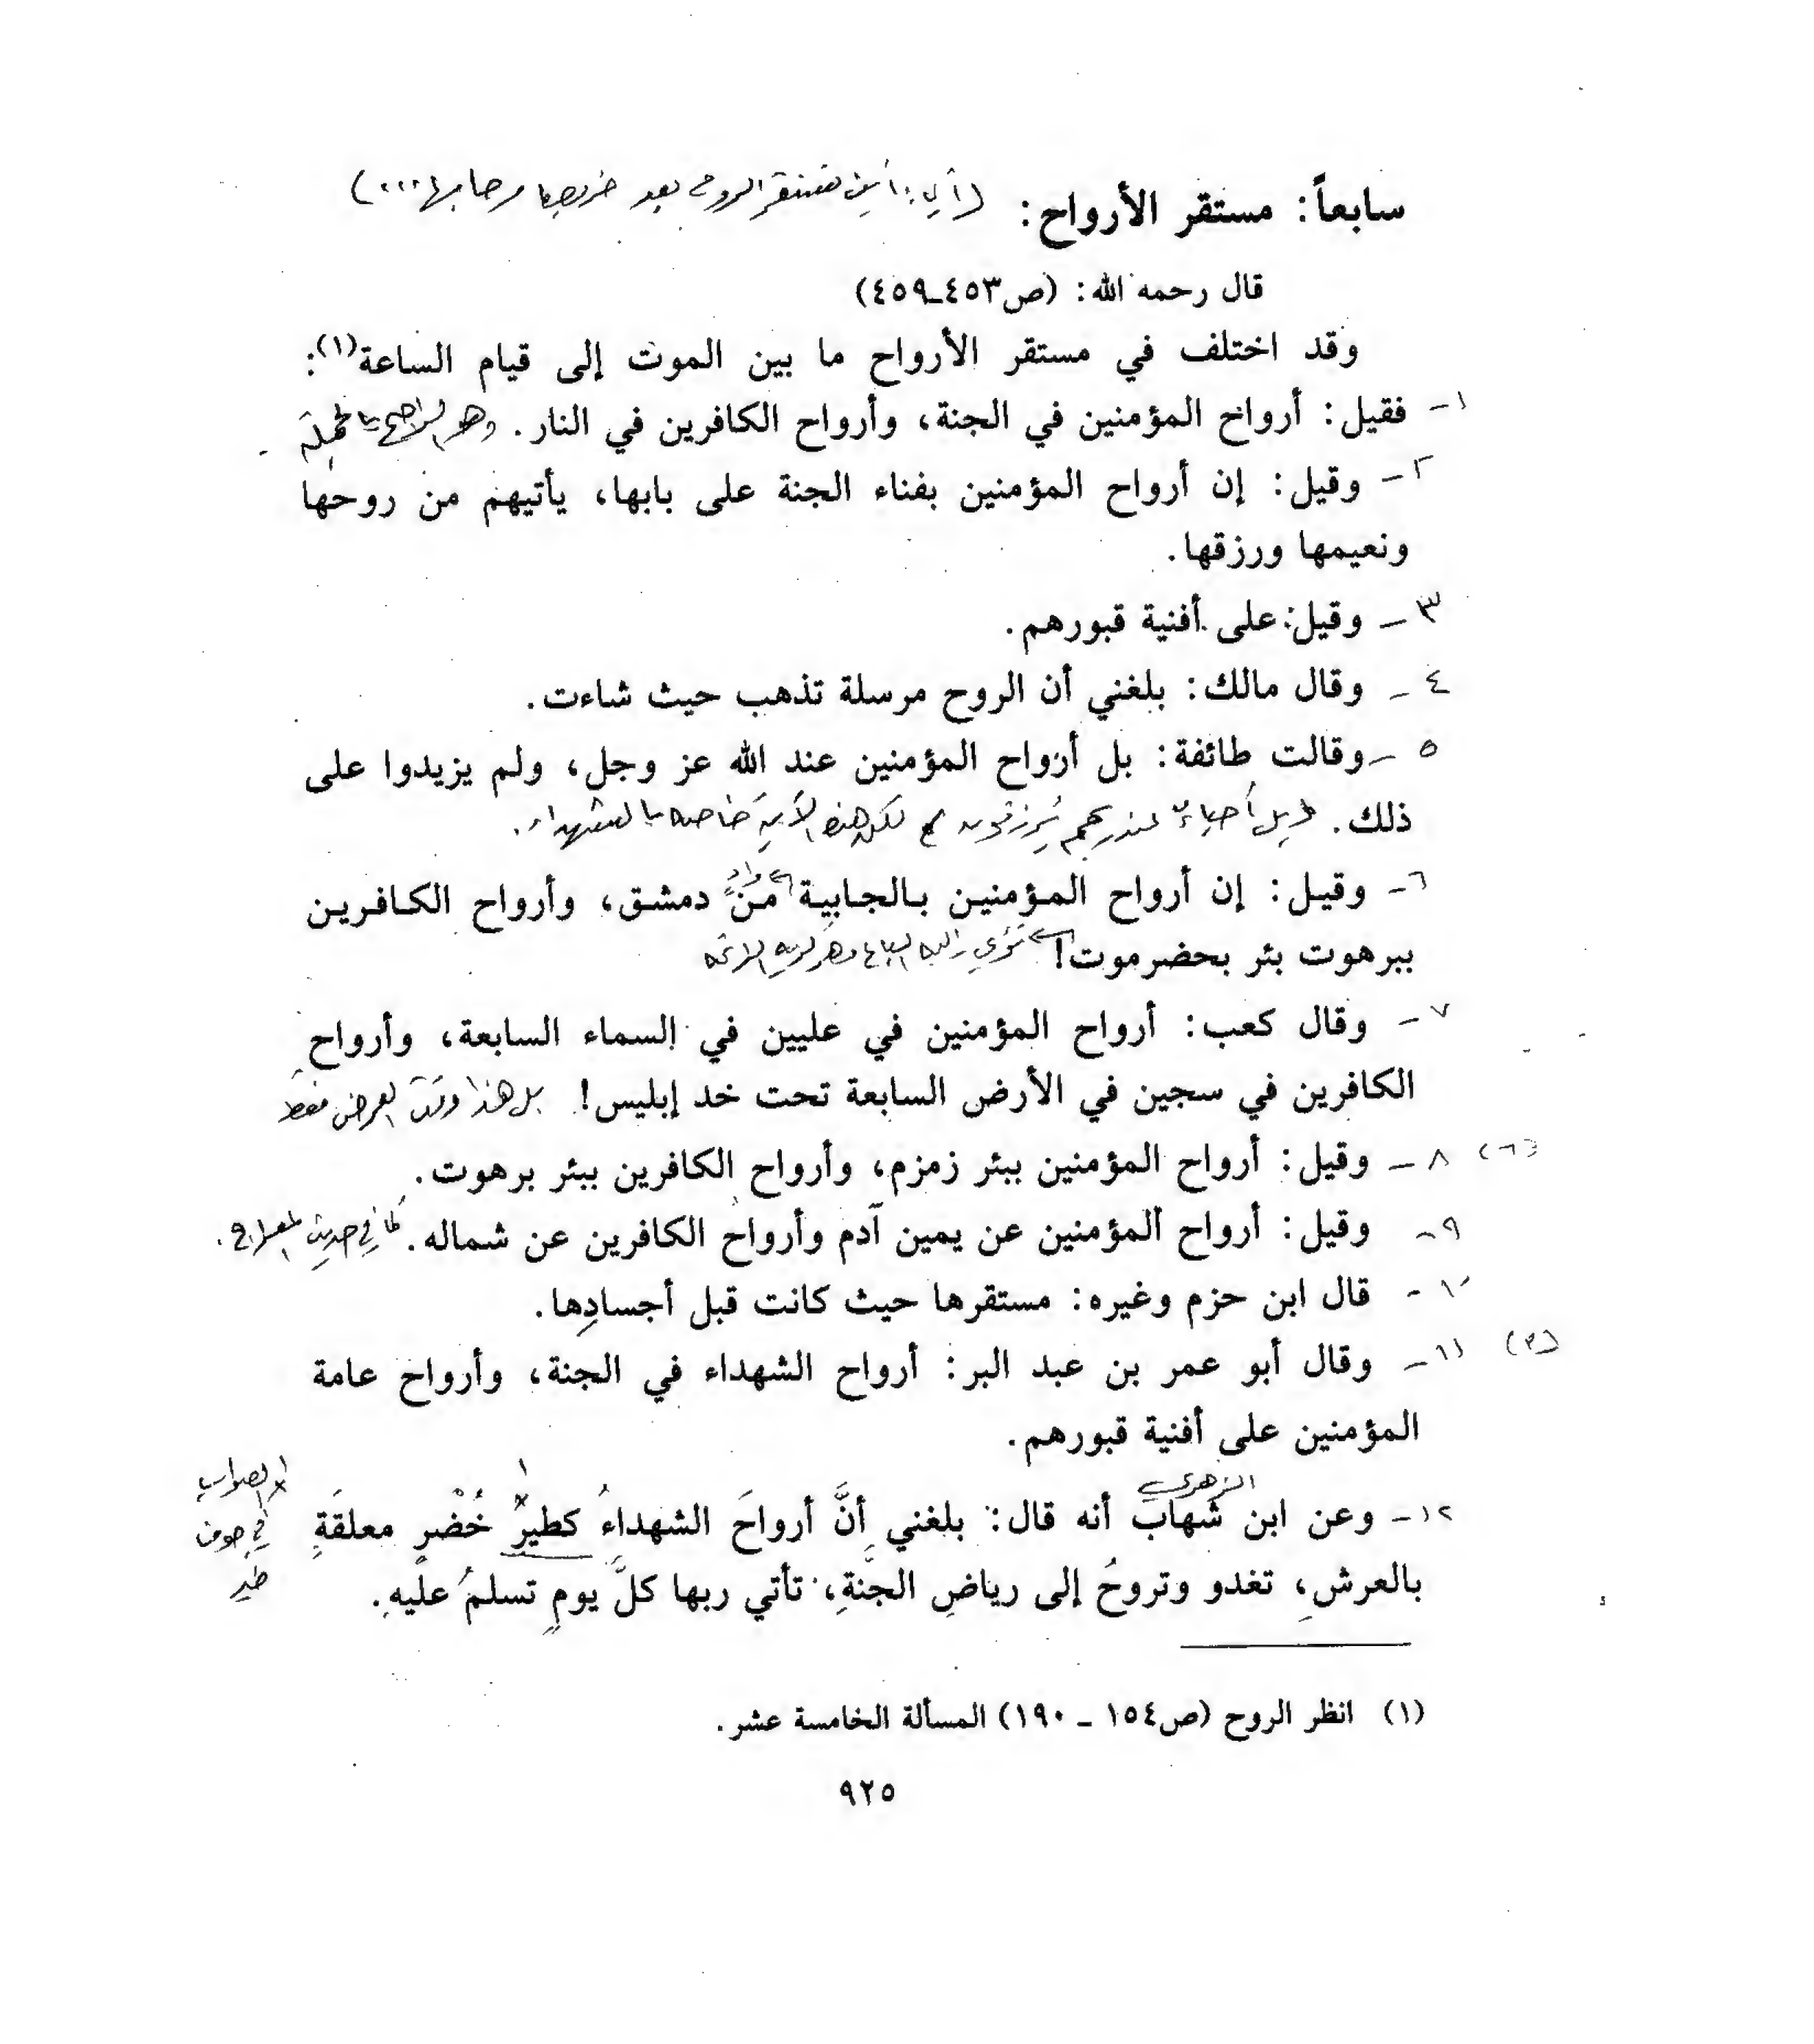 سابعاً: مستقر الأرواح: (أي: أين تستقر الروح بعد خروجها من صاحبها...)
قال رحمه الله: (ص٤٥٣ـ٤٥٩)
وقد اختلف في مستقر الأرواح ما بين الموت إلى قيام الساعة(١):
١- فقيل: أرواح المؤمنين في الجنة، وأرواح الكافرين في النار. وهو الراجح بالجملة
٢- وقيل: إن أرواح المؤمنين بفناء الجنة على بابها، يأتيهم من روحها
ونعيمها ورزقها.
٣- وقيل: على أفنية قبورهم.
٤- وقال مالك: بلغني أن الروح مرسلة تذهب حيث شاءت.
٥- وقالت طائفة: بل أرواح المؤمنين عند الله عز وجل، ولم يزيدوا على
ذلك. بل أحياءٌ عند ربهم يُرزقون لكن هذه الآية خاصة بالشهداء.
٦- وقيل: إن أرواح المؤمنين بالجابية من دمشق، وأرواح الكافرين
ببرهوت بئر بحضرموت!
٧- وقال كعب: أرواح المؤمنين في عليين في السماء السابعة، وأرواح
الكافرين في سجين في الأرض السابعة تحت خد إبليس! بل هذا وقت العرض فقط
(٦) ٨- وقيل: أرواح المؤمنين ببئر زمزم، وأرواح الكافرين ببئر برهوت.
٩- وقيل: أرواح المؤمنين عن يمين آدم وأرواح الكافرين عن شماله. كما في حديث المعراج.
١٠- قال ابن حزم وغيره: مستقرها حيث كانت قبل أجسادِها.
(٣) ١١- وقال أبو عمر بن عبد البر: أرواح الشهداء في الجنة، وأرواح عامة
المؤمنين على أفنية قبورهم.
الزهري
١٢- وعن ابن شهاب أنه قال: بلغني أنَّ أرواحَ الشهداءُ كطيرٍ خُضْرٍ معلقَةٍ
بالعرشِ، تغدو وتروحُ إلى رياضِ الجنَّةِ، تأتي ربها كلَّ يومٍ تسلمُ عليهِ.
الصواب
في جوف
طير
(١) انظر الروح (ص١٥٤ ـ ١٩٠) المسألة الخامسة عشر.
٩٢٥